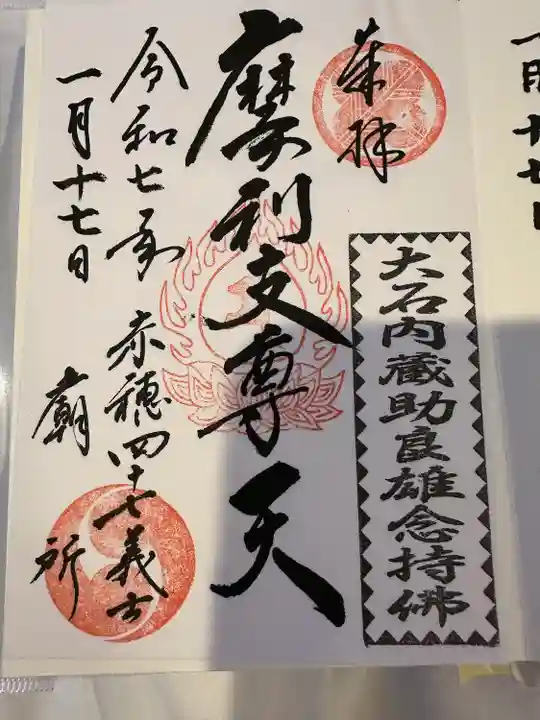 奉拝
大石内蔵助良雄念持佛
摩利支尊天
令和七年
一月十七日
赤穂四十七義士
廟所
一月十七日